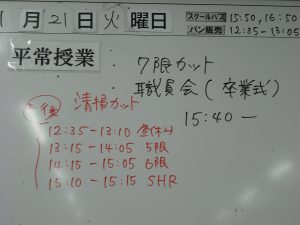 1月21日火曜日
スクールバス 15:50, 16:50
パン販売 12:35-13:05
平常授業
・7限カット
・職員会(卒業式)
15:40 —
清掃カット
12:35-13:10 昼休み
13:15-14:05 5限
14:15-15:05 6限
15:10-15:15 SHR